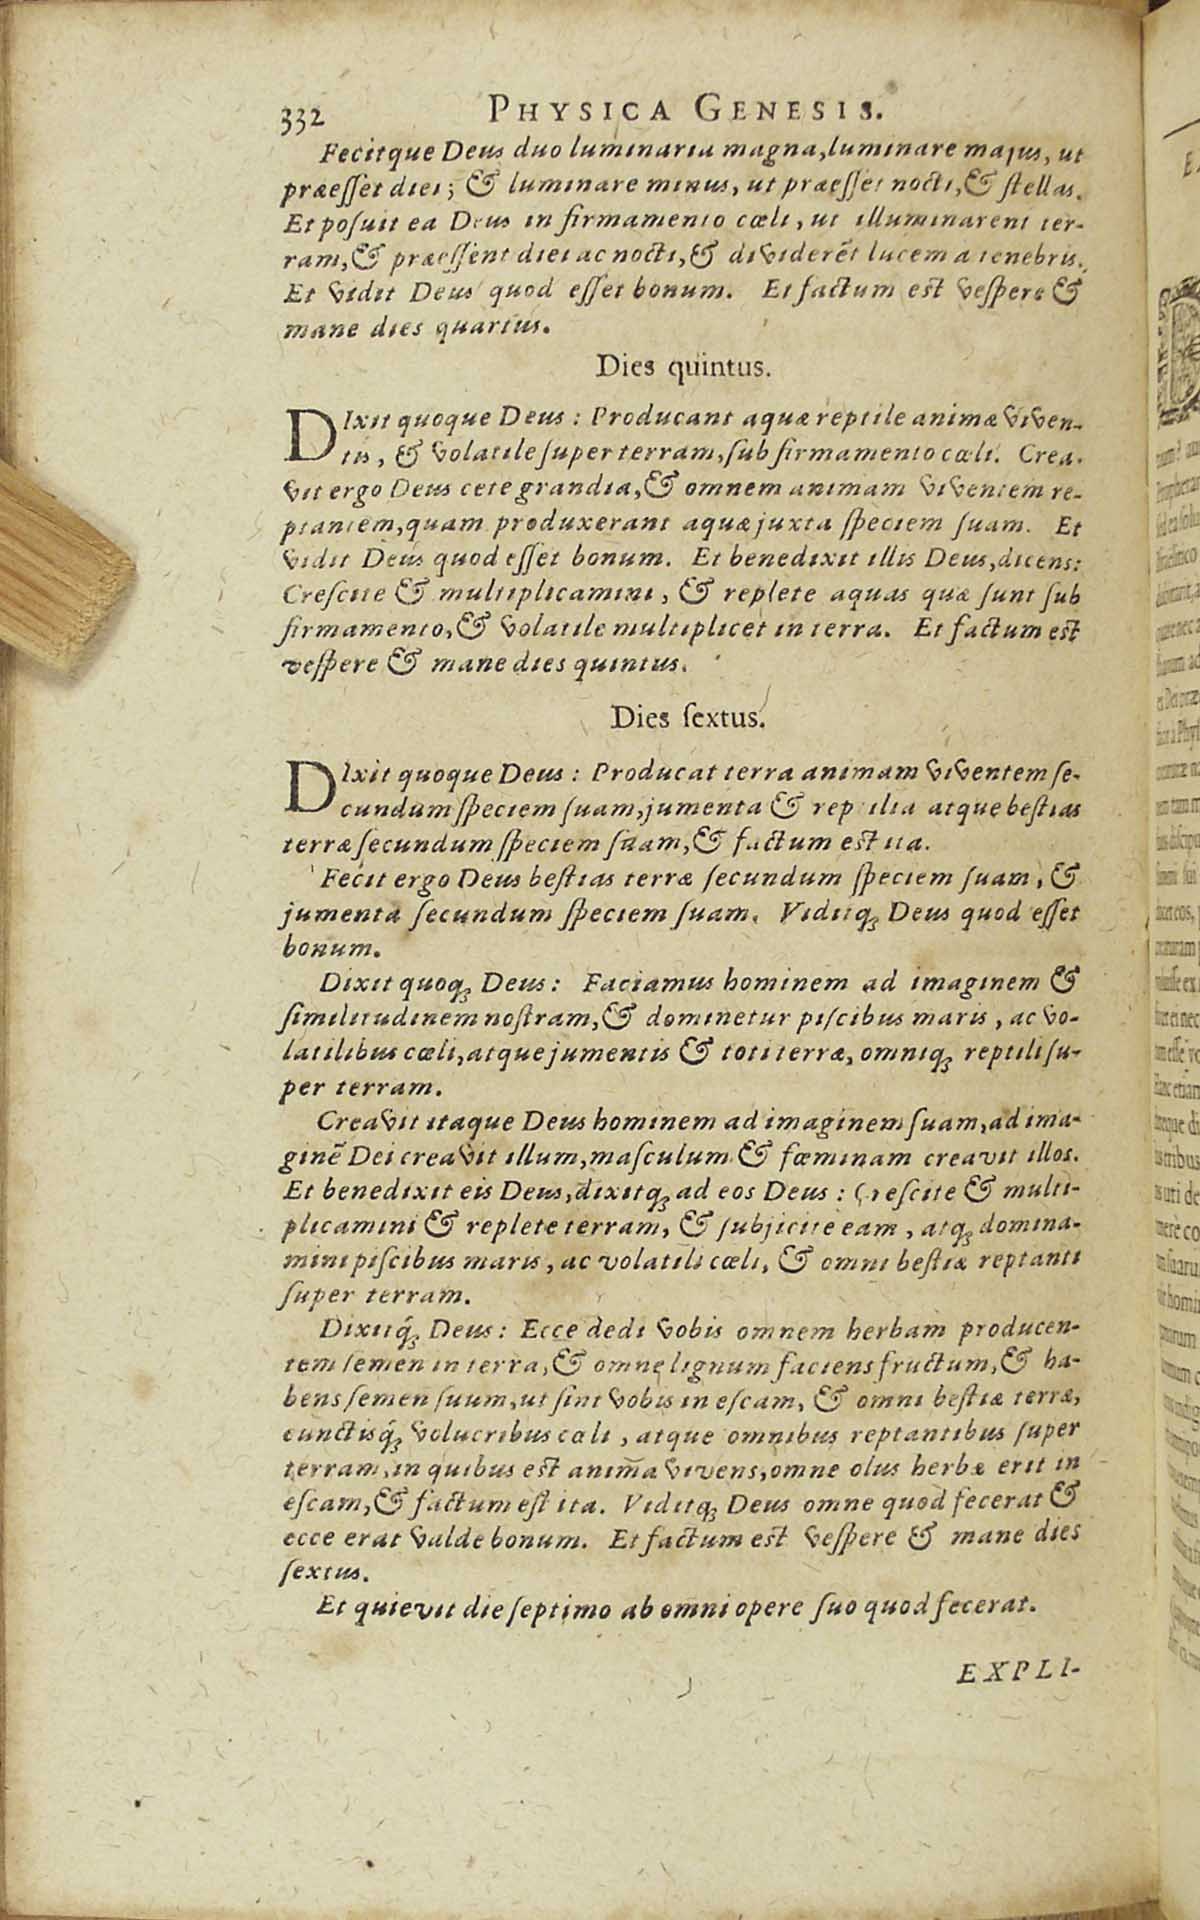 332 PHYSICA GENESIS.
Fecitque Deus duo luminaria magna, luminare majus, ut
præeſſet diei; & luminare minus, ut præeſſet nocti, & ſtellas.
Et poſuit ea Deus in firmamento cœli, ut illuminarent ter-
ram, & præeſſent diei ac nocti, & dividerēt lucem a tenebris.
Et vidit Deus quod eſſet bonum. Et factum eſt veſpere &
mane dies quartus.
Dies quintus.
DIxit quoque Deus: Producant aquæ reptile animæ viven-
tis, & volatile ſuper terram, ſub firmamento cœli. Crea-
vit ergo Deus cete grandia, & omnem animam viventem re-
ptantem, quam produxerant aquæ juxta ſpeciem ſuam. Et
vidit Deus quod eſſet bonum. Et benedixit illis Deus, dicens:
Creſcite & multiplicamini, & replete aquas quæ ſunt ſub
firmamento, & volatile multiplicet in terra. Et factum eſt
veſpere & mane dies quintus.
Dies ſextus.
DIxit quoque Deus: Producat terra animam viventem ſe-
cundum ſpeciem ſuam, jumenta & reptilia atque beſtias
terræ ſecundum ſpeciem ſuam, & factum eſt ita.
Fecit ergo Deus beſtias terræ ſecundum ſpeciem ſuam, &
jumenta ſecundum ſpeciem ſuam. Viditq; Deus quod eſſet
bonum.
Dixit quoq; Deus: Faciamus hominem ad imaginem &
ſimilitudinem noſtram, & dominetur piſcibus maris, ac vo-
latilibus cœli, atque jumentis & toti terræ, omniq; reptili ſu-
per terram.
Creavit itaque Deus hominem ad imaginem ſuam, ad ima-
ginē Dei creavit illum, maſculum & fœminam creavit illos.
Et benedixit eis Deus, dixitq; ad eos Deus: Creſcite & multi-
plicamini & replete terram, & ſubjicite eam, atq; domina-
mini piſcibus maris, ac volatili cœli, & omni beſtiæ reptanti
ſuper terram.
Dixitq́; Deus: Ecce dedi vobis omnem herbam producen-
tem ſemen in terra, & omne lignum faciens fructum, & ha-
bens ſemen ſuum, ut ſint vobis in eſcam, & omni beſtiæ terræ,
cunctisq́; volucribus cœli, atque omnibus reptantibus ſuper
terram, in quibus eſt anima vivens, omne olus herbæ erit in
eſcam, & factum eſt ita. Viditq; Deus omne quod fecerat &
ecce erat valde bonum. Et factum eſt veſpere & mane dies
ſextus.
Et quievit die ſeptimo ab omni opere ſuo quod fecerat.
EXPLI-